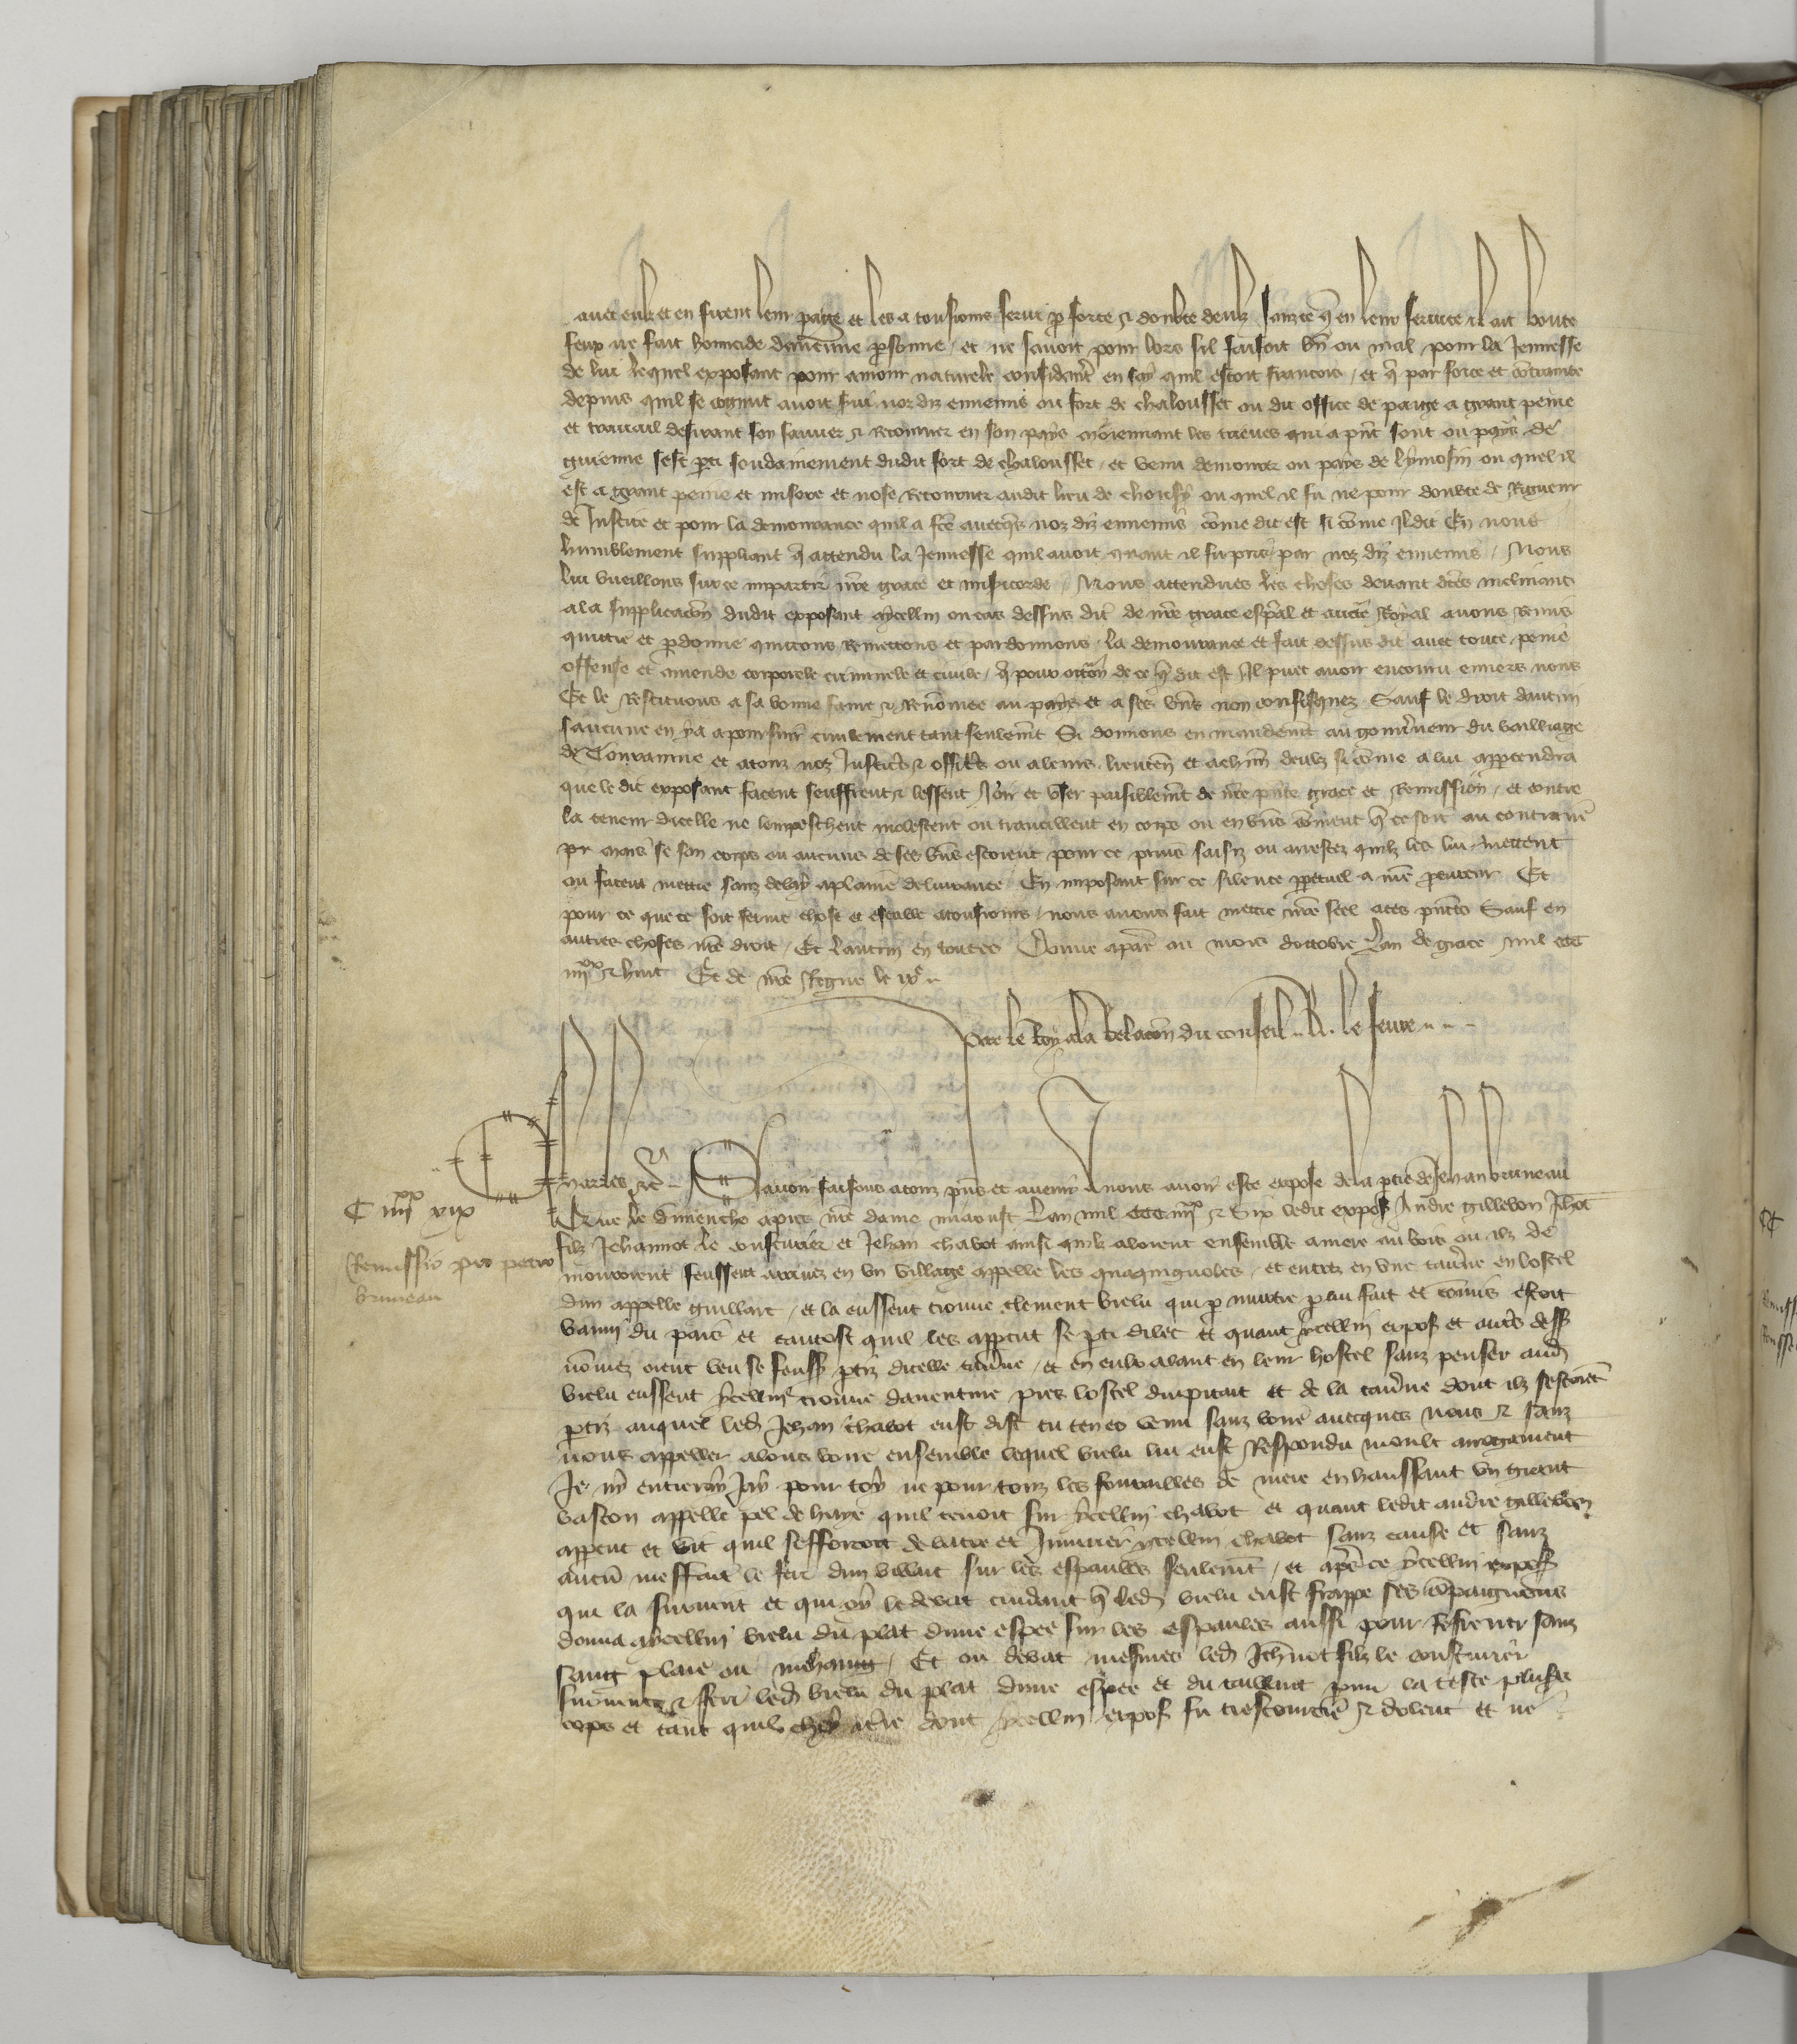 avec eulx et en firent leur paige et les a tousiours serui p force et doubte deulx sanz ce q̃ en leur seruice il ait boute
feux ne fait homicide daucune psonne / et ne sauoit pour lors sil faisoit bñ ou mal pour la Jennesse
de lui lequel exposant pour amour naturele considant̃ en soy quil estoit francois / et q̃ par force et cõtrainte
depuis quil se cognut auoit suy noz diz ennemis ou fort de chalousset ou dit office de paige a grant peine
et trauail desirant soy sauuer et retourner en son pays moiennant les treues qui a pñt sont ou pays de
guienne sest pti soudainement dudit fort de chalousset / et venu demourer ou pays de lymosin ou quel il
est a grant peine et misere et nose retourner audit lieu de chousy ou quel il fu ne pour doubte de Rigueur
de Justice et pour la demourance quil a fcẽ auecqs noz diz ennemis cõme dit est si cõme Il dit En nous
humblement suppliant q̃ attendu la Jennesse quil auoit quant il fu pris par noz diz ennemis / Nous
lui vueillons sur ce impartir nr̃e grace et misicorde / Nous attendues les choses deuant dc̃es inclinans
a la supplicacõn dudit exposant Aycellui ou cas dessus dit de nr̃e grace esp̃al et aucte Royal auons Remis
quictie et pdonne quictons Remettons et pardonnons la demourance et fait dessus dit auec toute peine
offense et amende corporele criminele et ciuile / q̃ pour occõn de ce q̃ dit est Il puet auoir encouru enuers nous
Et le Restituons a sa bonne fame et Renõmee au pays et a ses bñs non confisquez Sauf le droit dautrui
saucune en ya a poursuir ciuilement tant seulemt Si donnons en mandemt au gouuneur du bailliage
de Touraine et a touz noz Justics et offics ou a leurs lieuten̄ et a chũn deulz si cõme a lui apptendra
que le dit exposant facent seuffrent et lessent Joir et vser paisiblemt de nr̃e pñte grace et Remission / et contre
la teneur dicelle ne lempeschent molestent ou trauaillent en corps ou en biens cõment q̃ ce soit au contraire
mais se son corps ou aucuns de ses bñs estoient pour ce prins saisiz ou arrestez quilz les lui mettent
ou facent mettre sanz delay a plaine deliurance En imposant sur ce silence ppetuel a nr̃e pcureur Et
pour ce que ce soit ferme chose et estable a tousiours / nous auons fait mettre nr̃e seel a ces pñtes Sauf en
autres choses nr̃e droit / Et lautrui en toutes Donne a paris ou mois doctobre Lan de grace mil ccc
iiijxx et huit Et de nr̃e Regne le ixe
Par le Roy a la Relacõn du conseil .. R. le feure
C iiijxx xix
Remissio pro petro
bruneau
Charles etc̃ Sauoir faisons a touz pñs et auenir A nous auoir este expose de la ptie de Jehan bruneau
Que le dimenche apres nr̃e dame miaoust Lan mil ccc iiijxx et Six ledit expos Andre gillebon Jhot
filz Jehannot le cousturier et Jehan chabot ainsi quilz aloient ensemble a mere au bois ou ilz de
mouroient feussent arriuez en vn village appelle les quaquignoles / et entrez en vne tauerne en lostel
dun appelle guillart / et la eussent trouue clement vielu qui p murtre p lui fait et cõmis estoit
banny du pais et tantost quil les apperceut se pti dilec et quant ycellui expos et autrs dess
nõmez eient veu se feuss ptiz dicelle tauerne / et en eulx alant en leur hostel sanz penser aud
vielu eussent ycellui trouue dauenture pres lostel dupitait et de la tauerne dont ilz sestoiẽt
ptiz auquel led Jehan chabot eust dist tu ten es venu sanz boire auecques nous et sanz
nous appeller alons boire ensemble lequel vielu lui eust Respondu moult arrogament
Je ny entreray Ja pour toy ne pour touz les foirailles de mere en haussant vn grant
baston appelle pel de haye quil tenoit sur ycellui chabot et quant ledit andre gillebon
apperceut et vit quil sefforcoit de batre et Iniurier ycellui chabot sanz cause et sanz
aucũ meffait le feri dun billart sur les espaules seulemt / et apres ce ycellui expos
qui la suruint et qui oy le debat cuidant q̃ led vielu eust frappe ses cõpaignons
donna aycellui vielu du plat dune espee sur les espaules aussi pour Refrener sanz
sang plaie ou mehaing / Et ou debat mesmes led Jehnnot filz le cousturier
suruint et feri led vielu du plat dune espee et du taillant parmi la teste plusrs
cops et tant quil chey a tre dont ycellui expos fu trescourcie et dolent et ne